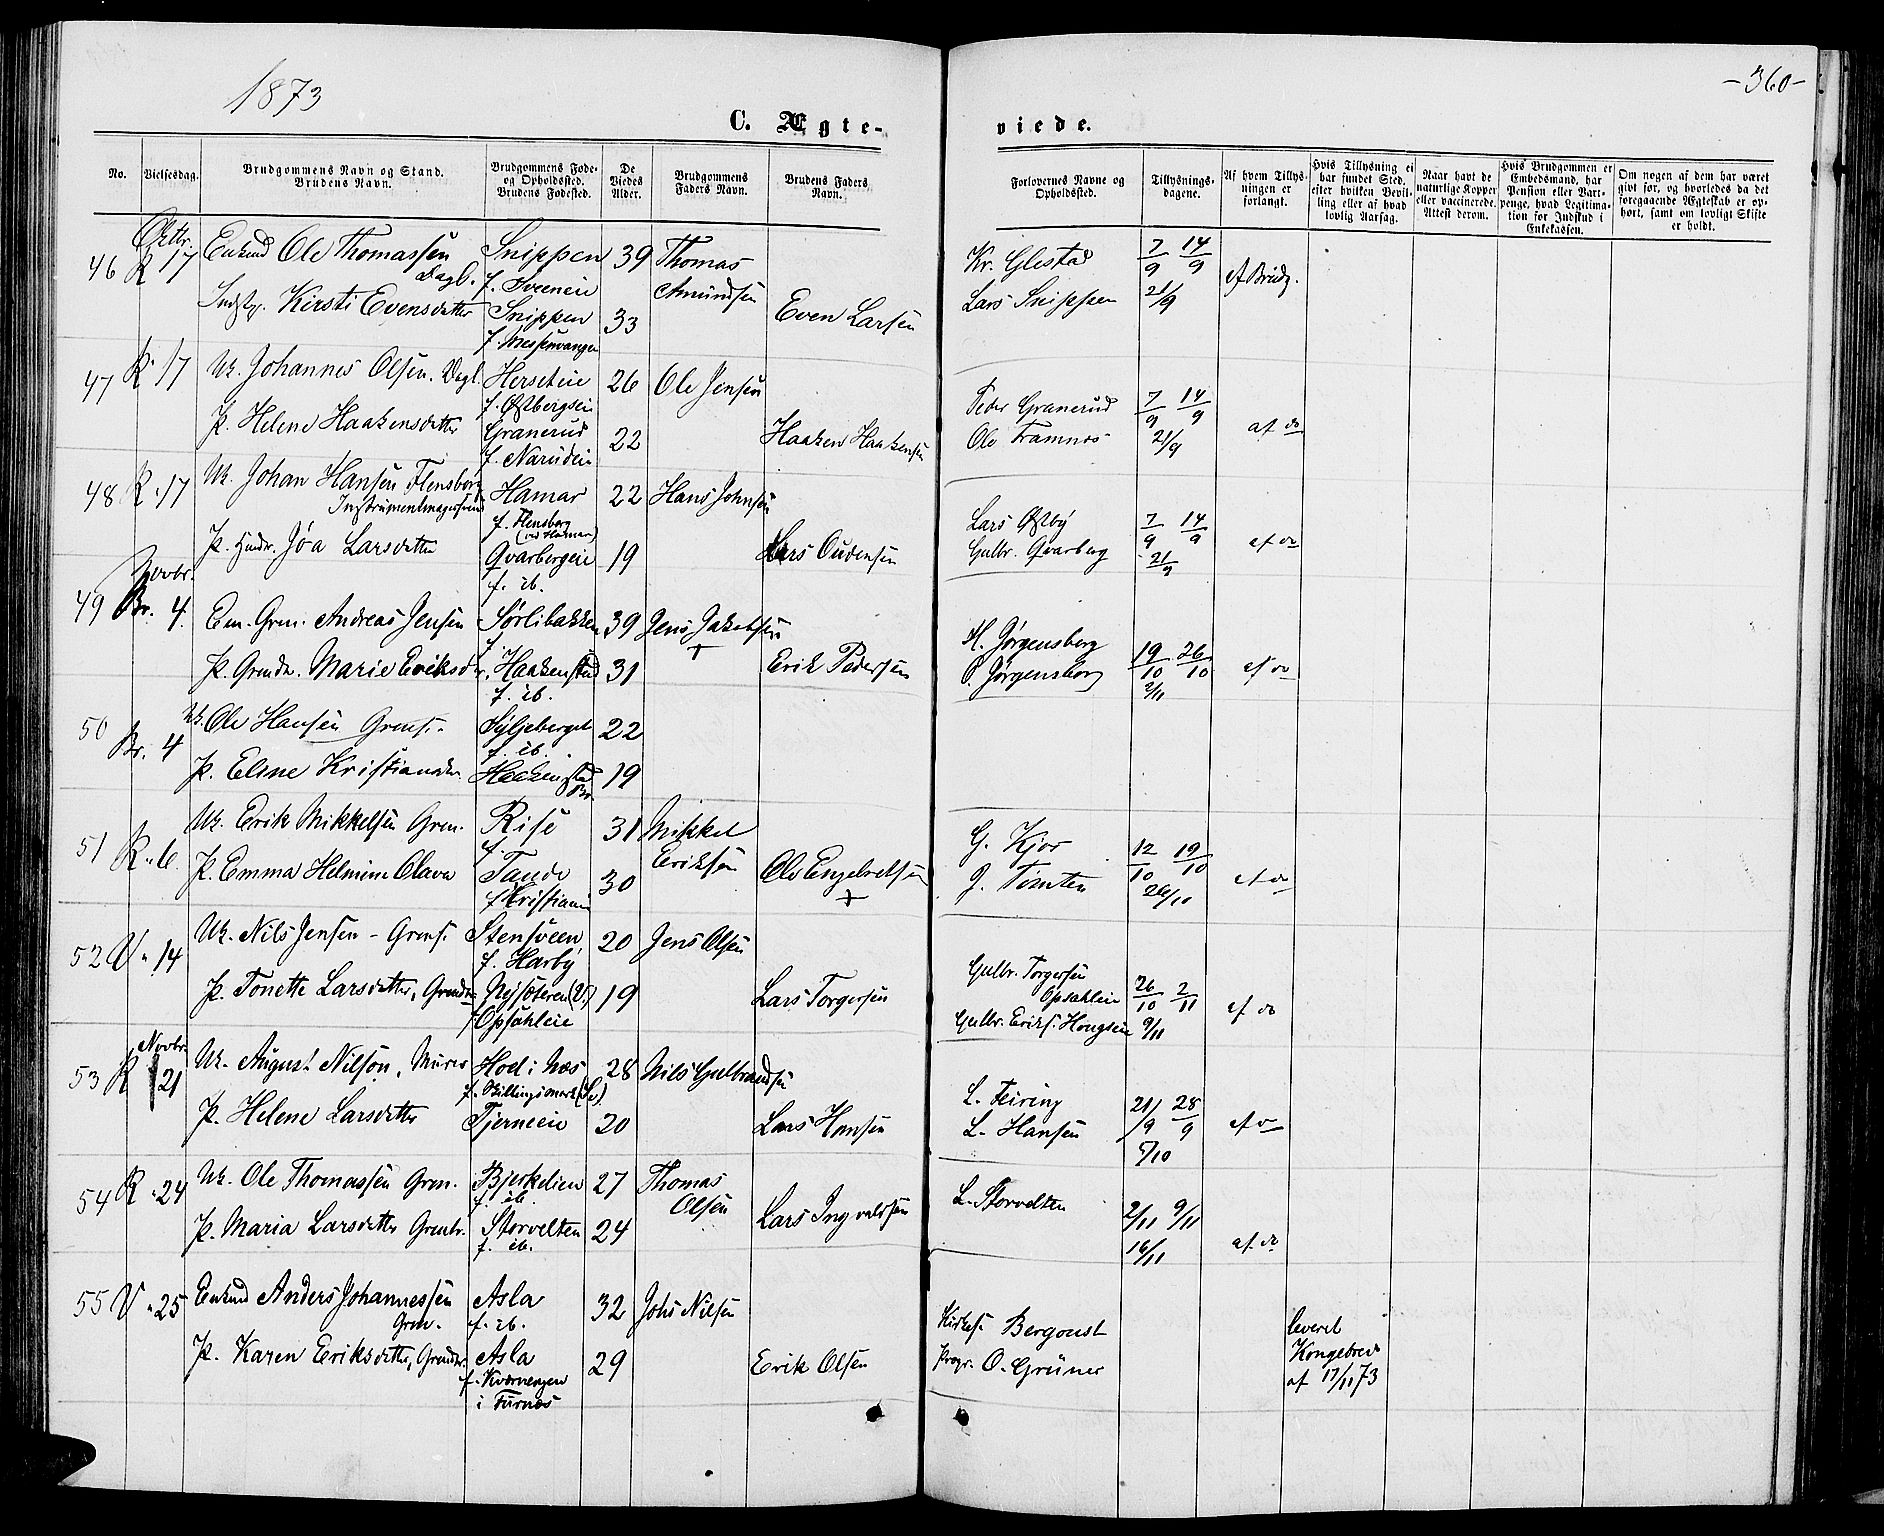 1873
-360-
C. Ægte-
viede.
No.
Vielsesdag.
Brudgommens Navn og Stand.
Brudens Navn.
Brudgommens Føde-
og Opholdssted.
Brudens Fødested.
De
Viedes
Alder.
Brudgommens
Faders Navn.
Brudens Faders
Navn.
Forlovernes Navne og
Opholdssted.
Tillysnings-
dagene.
Af hvem Tillys-
ningen er
forlangt.
Hvis Tillysning ei
har fundet Sted,
efter hvilken Bevil-
ling eller af hvad
lovlig Aarsag.
Naar havt de
naturlige Kopper
eller vaccinerede.
Attest derom.
Hvis Brudgommen er
Embedsmand, har
Pension eller Var-
penge, hvad Legitima-
tion for Indskud i
Enkekassen.
Om nogen af dem har været
gift før, og hvorledes da det
foregaaende Ægteskab er op-
hørt, samt om lovligt Skifte
er holdt.
46 Oktbr. R 17 Enkmd Ole Thomassen Dagl. Snippen f. Sveeneie 39 Thomas Amundsen Kr. Glestad 7/9 14/9 af Brudg.
Kirsti Evensdatter Snippen f. 33 Even Larsen Lars Snippen 21/9
47 R. 17 Uk. Johannes Olsen. Dagl. Herseteie f. Østbergseie 26 Ole Jensen Peder Granerud 7/9 14/9 af do
P. Helene Haakensdatter Granerud f. Narudeie 22 Haaken Haakensen Ole Framnes 21/9
48 R. 17 Uk. Johan Hansen Flensborg Instrumentmagersvend Hamar f. Flensborg (ved Hamar) 22 Hans Johnsen Lars Østby 7/9 14/9 af do
P. Huudr. Jøa Larsdatter Qvarbergeie f. ib. 19 Lars Oudensen Gulbr. Qvarberg 21/9
49 Novbr. Br. 4. Em. Grm. Andreas Jensen Sørlibakken f. 39 Jens Jakobsen + H. Jørgensborg 19/10 26/10 af do
P. Grmdr. Marie Eriksdtr. Haakenstad f. ib. 31 Erik Pedersen P. Jørgensborg 2/11
50 Br. 4 Uk. Ole Hansen Grms. Syljeberget f. ib. 22
P. Eline Kristiansdr. Haakenstad Br. 19
51 R. 6. Uk. Erik Mikkelsen Grm. Rise f. 31 Mikkel Eriksen G. Kjos 12/10 19/10 af do
P. Emma Helmine Olava Tande f. Kristiania 30 Ole Engelretsen + J. Tomten 26/10
52 V. 14 Uk. Nils Jensen - Grms. Stensveen f. Harby 20 Jens Olsen Gulbr. Torgersen Opsahleie 26/10 2/11 af do
P. Tonette Larsdatter, Grmdr. Nysæteren (V.) f. Opsahleie 19 Lars Torgersen Gulbr. Eriks. Hougseie 9/11
53 Novbr. R 21 Uk. August Nilson, Murer Hoel i Næs f. Billingsmark (Sv.) 28 Nils Gulbrandsen L. Feiring 21/9 28/9 af do
P. Helene Larsdatter Tjerneeie 20 Lars Hansen L. Hansen 5/10
54 R. 24 Uk. Ole Thomassen Grm. Bjerkelien f. ib. 27 Thomas Olsen L. Storvelten 2/11 9/11 af do
P. Maria Larsdatter Grmdr. Storvelten f. ib. 24 Lars Ingvaldsen 16/11
55 V. 25 Enkmd Anders Johannessen Grm. Asla f. ib. 32 Johs Nilsen Kirkes. Bergquist leveret Kongebrev af 17/11 73
P. Karen Eriksdatter, Grmdr. Asla f. Kværnengen i Furnæs 29 Erik Olsen Progr. O. Grüner